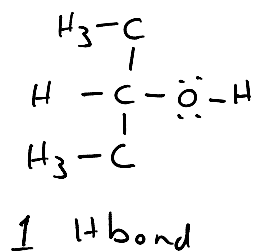 H3-C
H - C - O - H
H3 - C
1 Hbond